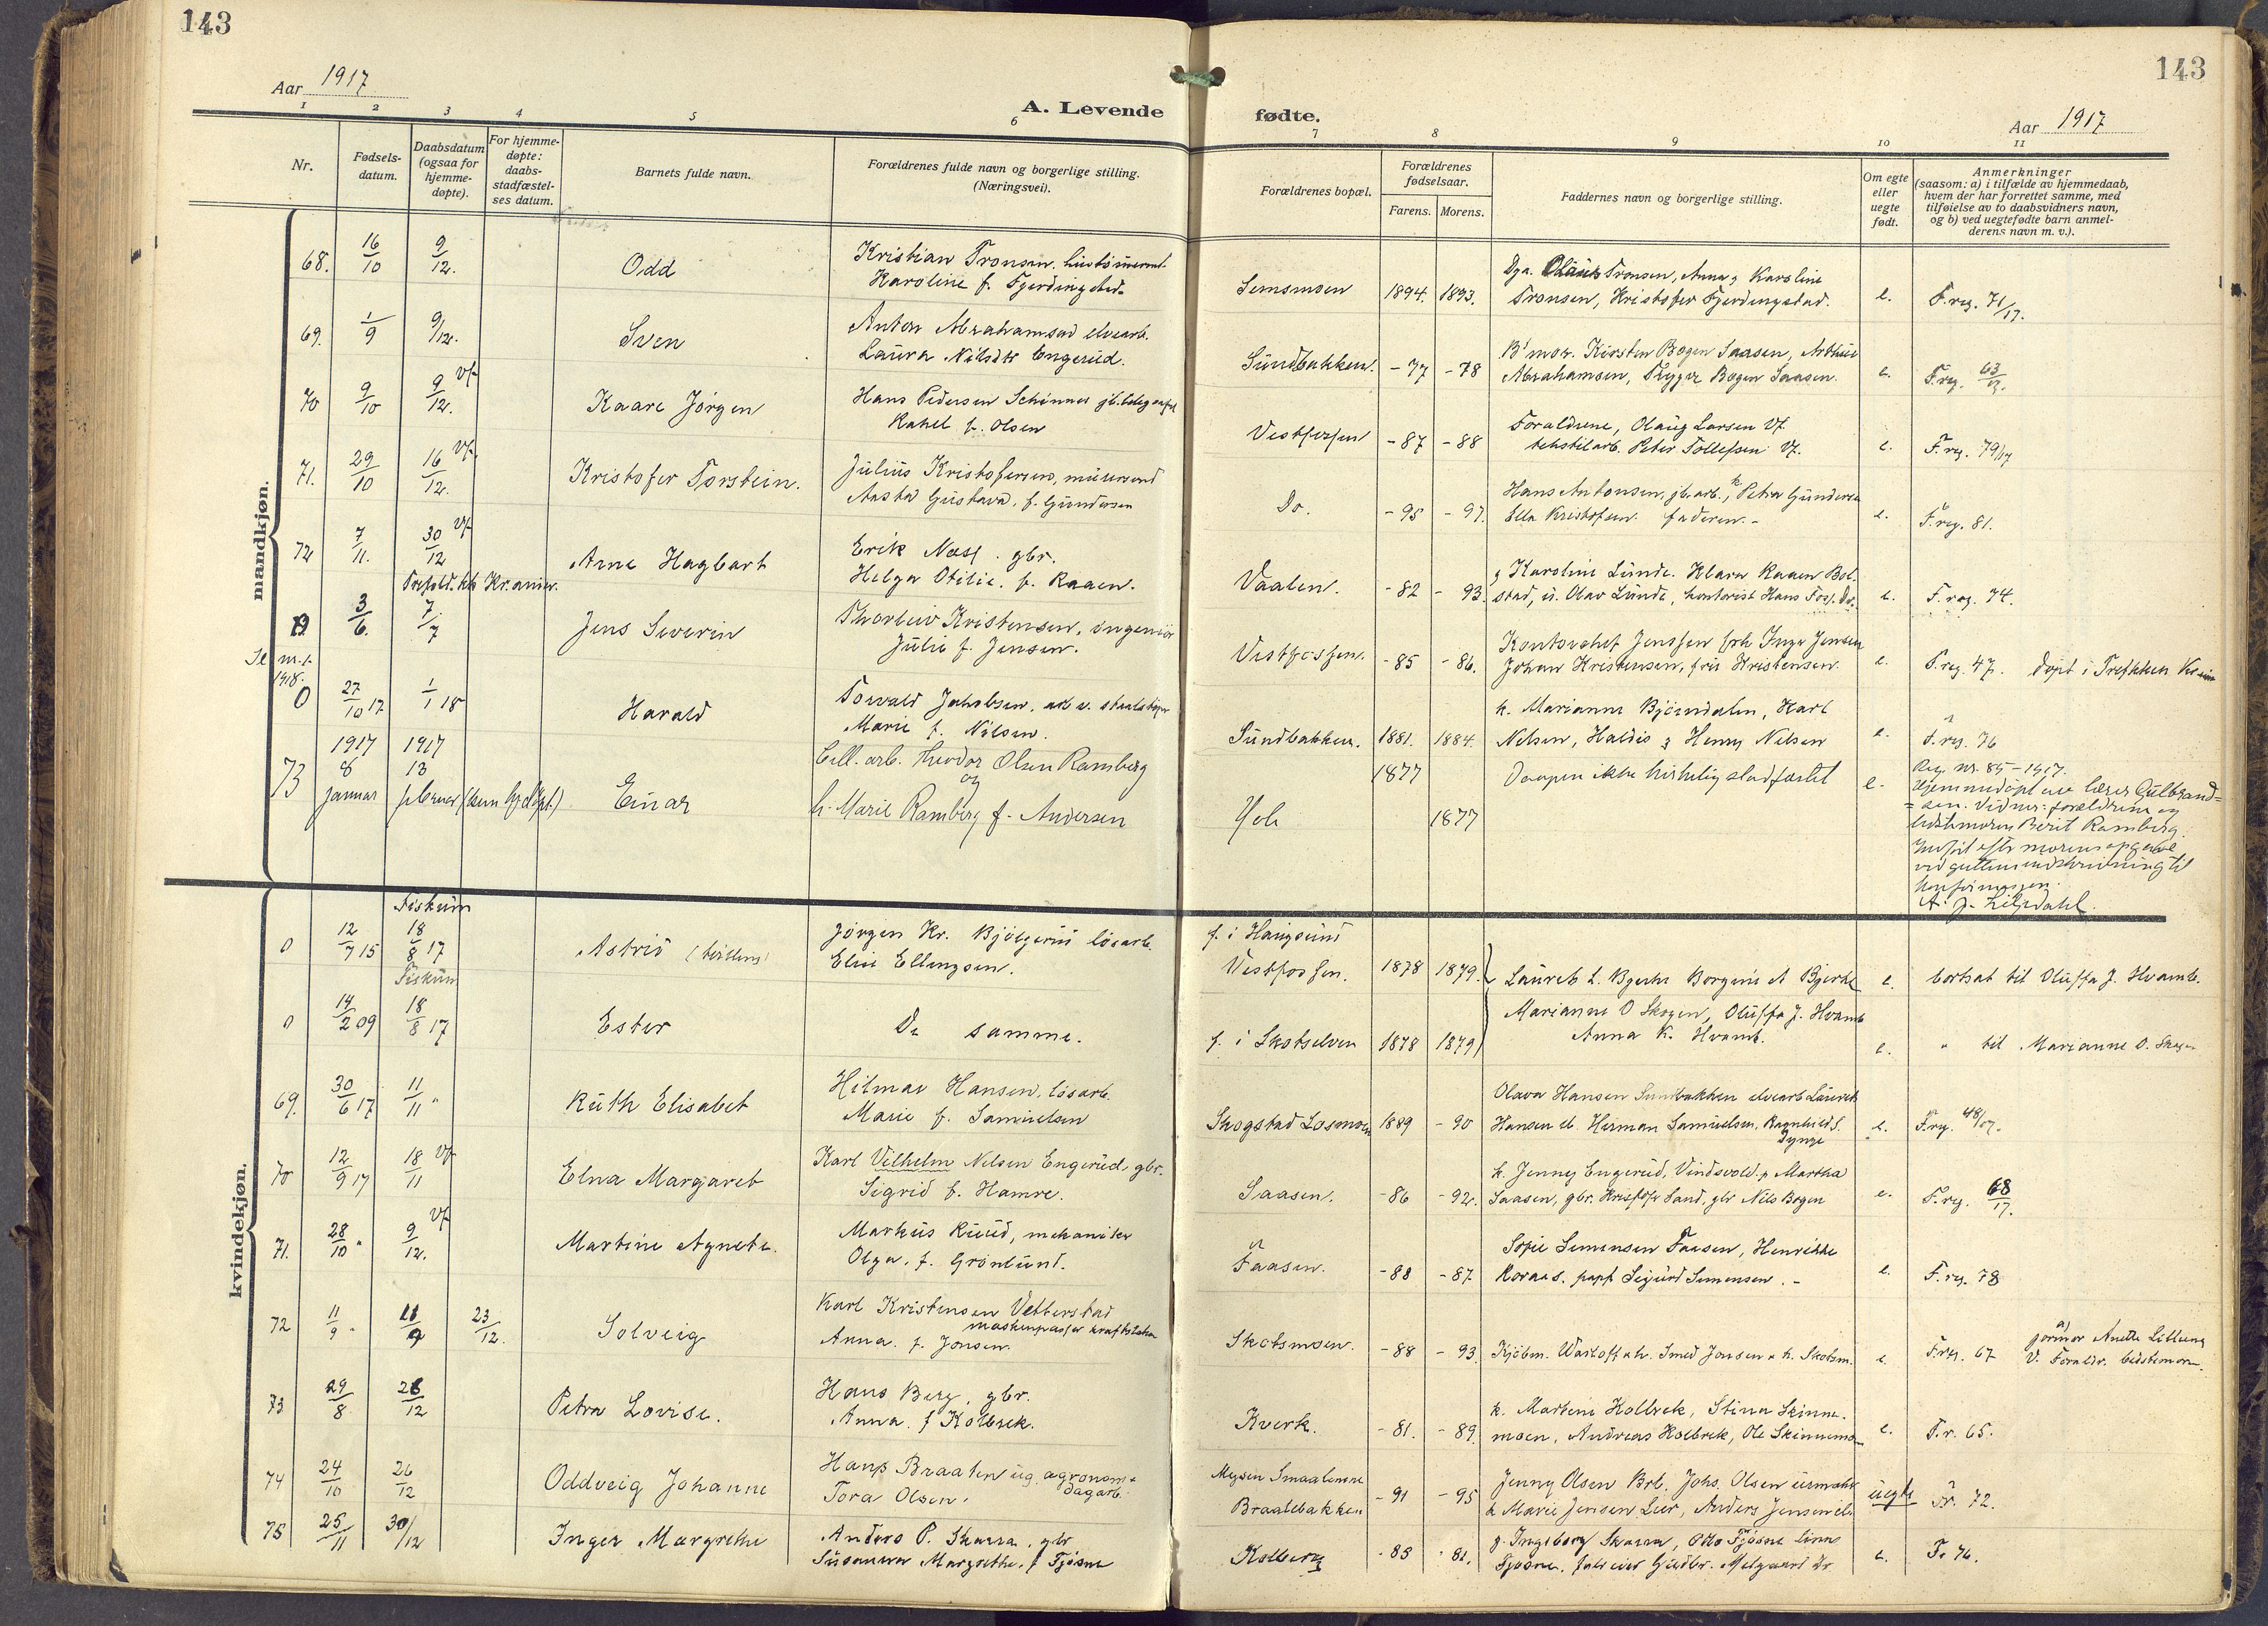 143
143
Aar 1917
A. Levende fødte.
Aar 1917
1 2 3 4 5 6 7 8 9 10 11
Nr.
Fødsels-
datum.
Daabsdatum
(ogsaa for
hjemme-
døpte).
For hjemme-
døpte:
daabs-
stadfæstel-
ses datum.
Barnets fulde navn.
Forældrenes fulde navn og borgerlige stilling.
(Næringsvei).
Forældrenes bopæl.
Forældrenes
fødselsaar.
Farens. Morens.
Faddernes navn og borgerlige stilling.
Om egte
eller
uegte
født.
Anmerkninger
(saasom: a) i tilfælde av hjemmedaab,
hvem der har forrettet samme, med
tilføielse av to daabsvidners navn,
og b) ved uegtefødte barn anmel-
derens navn m. v.).
mandkjøn.
68. 16/10 9/12. Odd
Kristian Tronsen,
Karoline f. Fjerdingstad
Semsmoen 1894. 1893.
Dga. Olaus Tronsen, Anna g Karoline
Tronsen, Kristofer Fjerdingstad.
e. F. reg. 71/17.
69. 1/9 9/12. Sven
Anton Abrahamsen elvearb.
Laura Nilsdtr Engerud.
Sundbakken. -77 -78
Kirsten Bogen Saasen, Arthur
Abrahamsen, Trygve Bogen Saasen.
e. F. reg. 63/17.
70 9/10 9/12. Vf. Kaare Jørgen
Hans Pedersen Schinnes
Rakel f. Olsen
Vestfossen -87 -88
Forældrene, Olaug Larsen Vf.
tekstilarb. Peter Tollefsen Vf.
e. F. reg. 79/17
71. 29/10 16/12. Vf. Kristofer Torstein.
Julius Kristofersen, murersvend
Aasta Gustava, f. Gundersen
Do. -95 -97.
Hans Antonsen, jb. arb., k. Petra Gundersen
Ella Kristofsen. faderen. -
e. F. reg. 81.
72 7/11. 30/12 Vf. Arne Hagbart
Erik Næss. gbr.
Helga Otilie. f. Raaen.
Vaalen. -82 -93.
g Karoline Lunde. Klara Raaen Bol-
stad, u. Olav Lunde, kontorist Hans Foss. Do.
e. F. reg. 74.
Trefold. kk Kr.ania.
3/6. 7/7 Jens Severin
Thorleiv Kristensen, ingeniør
Julie f. Jensen.
Vestfossen. -85 -86.
Kontorchef Jenssen frk Inga Jensen
Johan Kristensen, fru Kristensen.
e. F. reg. 47. døpt i Trefkken Kr.ania
Se m. 1. 1918.
0 27/10 17 1/1 18 Harald
Torvald Jakobsen,
Marie f. Nilsen.
Sundbakken. 1881. 1884.
k. Marianne Bjørndalen, Karl
Nelsen, Haldis g Henry Nelsen
e. F. reg. 76
1917 1917
73 8 januar 13 februar (kun hj.døpt) Einar
Cell. arb. Theodor Olsen Ramberg
og
h. Marie Ramberg f. Andersen
Hole 1877 1877
Daapen ikke kirkelig stadfæstet
e. Reg. nr. 85 - 1917.
Hjemmedøpt av lærer Gulbrand-
=sen. Vidner: forældrene og
bedstemoren Berit Ramberg.
Indført efter morens opgave
ved guttens indskrivning til
konfirmasjon.
A. J. Liljedahl.
kvindekjøn.
Fiskum
0 12/7 15 18/8 17 Astrid (tvilling)
Jørgen Kr. Bjølgerud løsarb.
Elise Ellingsen.
f. i Haugsund
Vestfossen. 1878 1879.
Laurits L. Bjerke Borgine A Bjerke
Marianne O Skogen, Oluffa J. Hvamb
Anna K. Hvamb.
e. bortsat til Oluffa J. Hvamb.
Fiskum
0 14/2 09 18/8 17 Ester
De samme.
f. i Skotselven 1878 1879
e. " til Marianne O. Skogen
69. 30/6 17 11/11 " Ruth Elisabet
Hilmar Hansen, løsarb.
Marie f. Samuelsen
Skogstad Losmoen 1889 -90
Olava Hansen Sundbakken elvearb Laurits
Hansen Herman Samuelsen, Ragnhild S.
Synge
e. F. reg. 48/17.
70 12/9 17 18/11 Vf Elna Margaret
Karl Vilhelm Nilsen Engerud, gbr.
Sigrid f. Hamre.
Saasen. -86 -92.
k. Jenny Engerud, Vindsvold. p Martha
Saasen, gbr. Kristofer Sand, gbr Nils Bogen
e. F. reg. 68/17.
71. 28/10 " 9/12. Vf Martine Agnete.
Markus Ruud, mekaniker
Olga. f. Grønlund.
Faasen. -88 -87.
Sofie Simensen Faasen, Henrikke
Koraas. Sigurd Simensen. -
e. F. reg. 78
72 11/9 " 11/9 23/12. Solveig
Karl Kristensen Vetterstad
maskinpasser kraftstation
Anna. f. Jonsen.
Skotsmoen. -88 -93.
Kjøbm. Wastoff & h. Smed Jonsen & h. Skotsm.
e. F. reg. 67
a) jormor Anette
V. Forældr. bedstemoren.
73 29/8 26/12 Petra Lovise.
Hans Berg. gbr.
Anna. f Kolbræk.
Kverk. -81. -89.
k. Martine Kolbrek, Stina Skinne-
moen, Andreas Kolbrek, Ole Skinnemoen
e. F. r. 65.
74 24/10 26/12 Oddveig Johanne
Hans Braaten ug. agronom &
dagarb.
Tora Olsen.
Mysen Smaalenene
Braatebakken -91 -95
Jenny Olsen Brb. Johs. Olsen
k Marie Jensen Lier, Anders Jensen
uegte Fr. 72.
75 25/11 30/12 Inger Margrethe
Anders P. Skarra. gbr
Susanna Margrethe. f Fjøsne
Kolberg -83 -82.
g. Ingeborg Skarra, Otto Fjøsne
Fjøsne.
e. Fr 76.